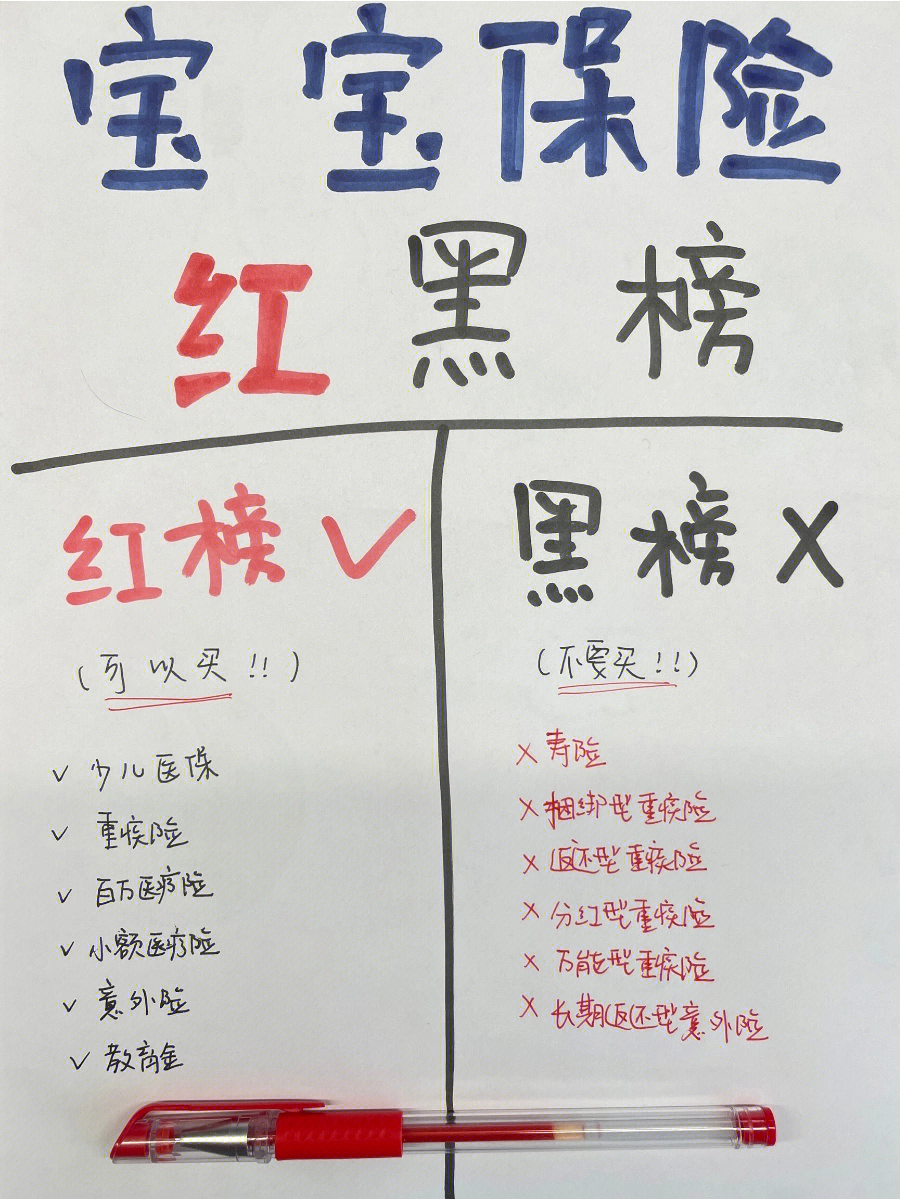 宝宝保险
红黑榜
红榜 ✓
(可以买!!)
✓ 少儿医保
✓ 重疾险
✓ 百万医疗险
✓ 小额医疗险
✓ 意外险
✓ 教育金
黑榜 X
(不要买!!)
X 寿险
X 捆绑型重疾险
X 返还型重疾险
X 分红型重疾险
X 万能型重疾险
X 长期返还型意外险